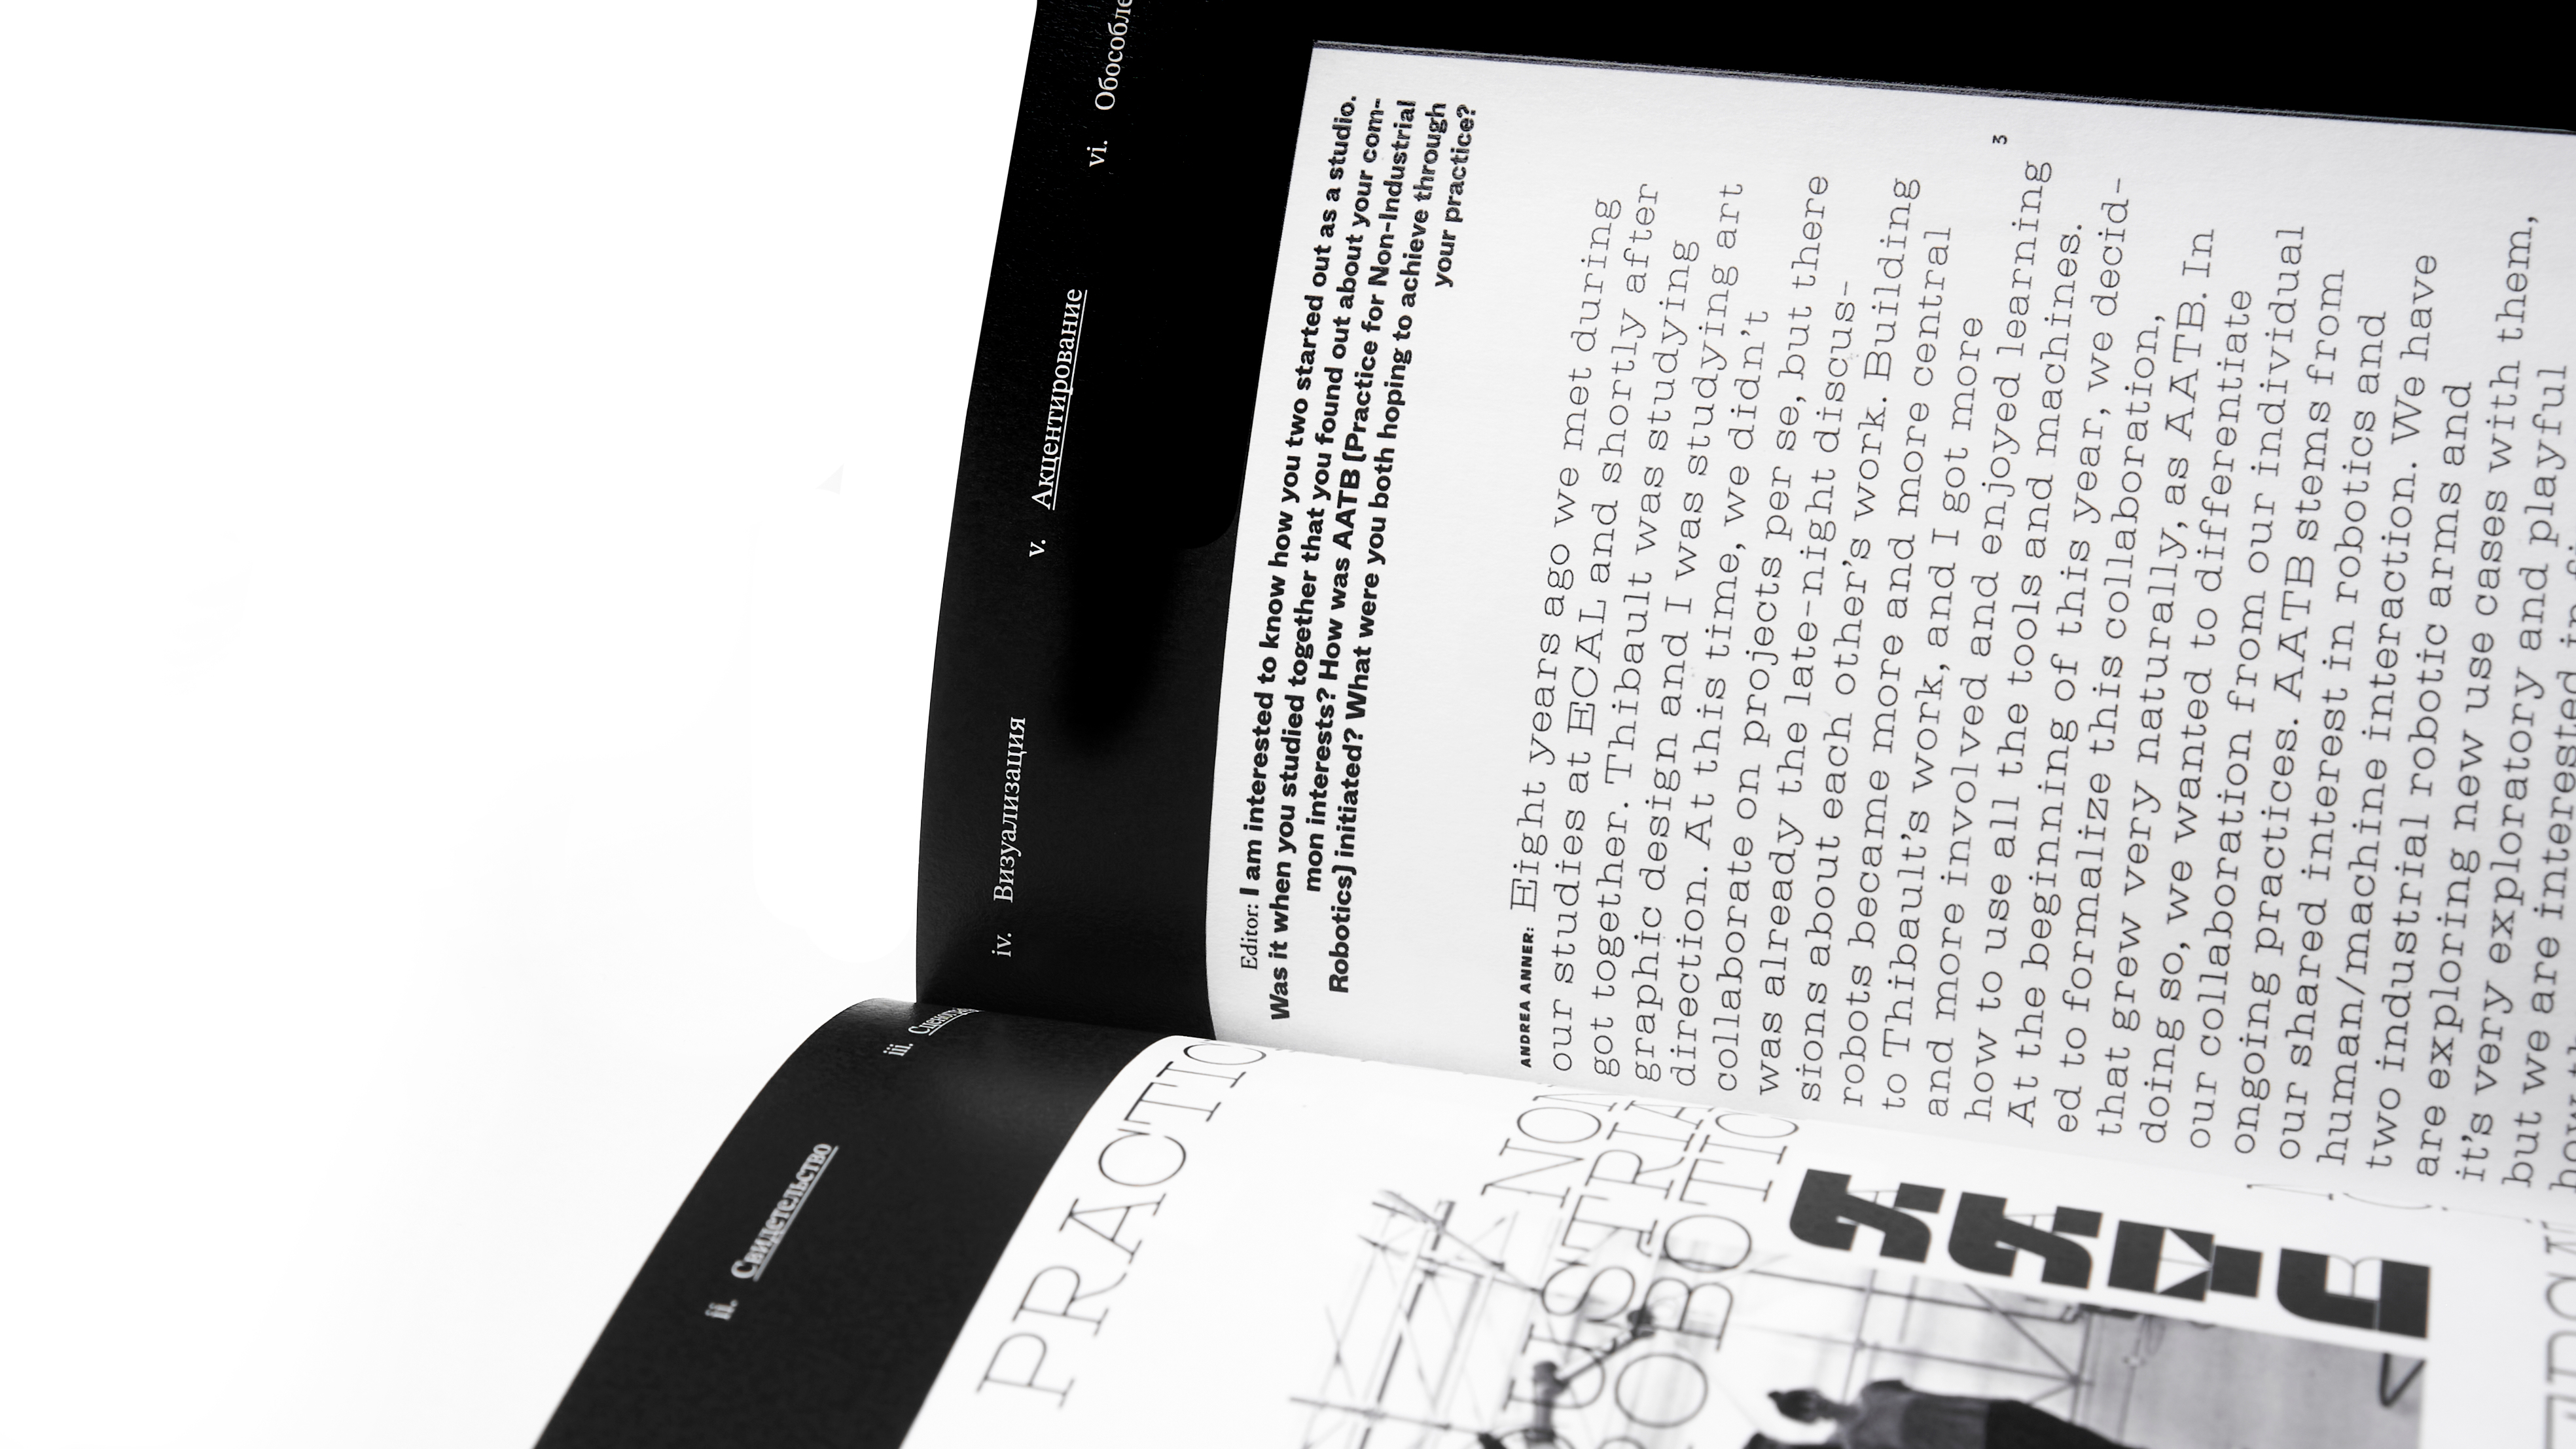 ii. Свидетельство
iii.
iv. Визуализация
v. Акцентирование
vi.
PRACTIC
NON
ROBOTIC
Editor: I am interested to know how you two started out as a studio.
Was it when you studied together that you found out about your com-
mon interests? How was AATB (Practice for Non-Industrial
Robotics) initiated? What were you both hoping to achieve through
your practice?
3
ANDREA ANNER: Eight years ago we met during
our studies at ECAL and shortly after
got together. Thibault was studying
graphic design and I was studying art
direction. At this time, we didn't
collaborate on projects per se, but there
was already the late-night discus-
sions about each other's work. Building
robots became more and more central
to Thibault's work, and I got more
and more involved and enjoyed learning
how to use all the tools and machines.
At the beginning of this year, we decid-
ed to formalize this collaboration,
that grew very naturally, as AATB. In
doing so, we wanted to differentiate
our collaboration from our individual
ongoing practices. AATB stems from
our shared interest in robotics and
human/machine interaction. We have
two industrial robotic arms and
are exploring new use cases with them,
it's very exploratory and playful
but we are interested in